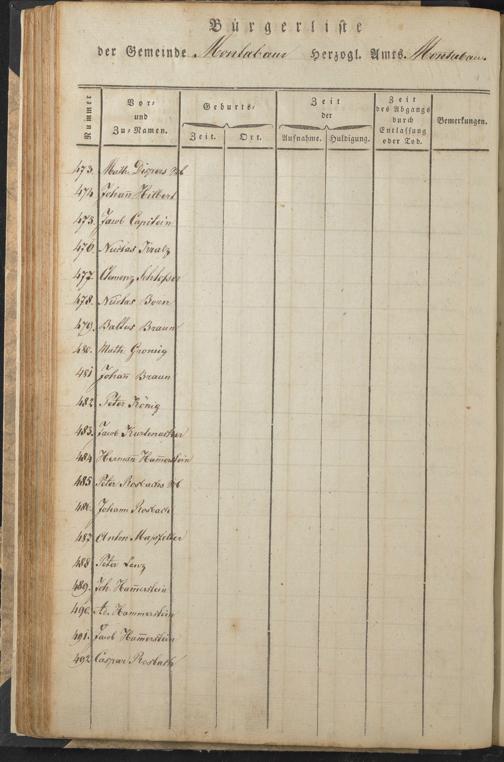 Bürgerliste
der Gemeinde Montabaur Herzogl. Amts. Montabaur.
Nummer
Vor-
und
Zu-Namen.
Geburts-
Zeit. Ort.
Zeit
der
Aufnahme. Huldigung.
Zeit
des Abgangs
durch
Entlassung
oder Tod.
Bemerkungen.
473. Math.
474. Johann Hilbert
475. Jacob Capitein
476. Niclas Kralz
477. Clemenz Schlosser
478. Niclas Born
479. Baltus Braun
480. Math.
481 Johann Braun
482 Peter König
483. Jacob
484 Hermann Hammerstein
485 Peter
486. Johann Rosbach
487 Anton
488 Peter Lenz
489. Joh. Hammerstein
490. Ad. Hammerstein
491. Jacob Hammerstein
492 Caspar Rosbach